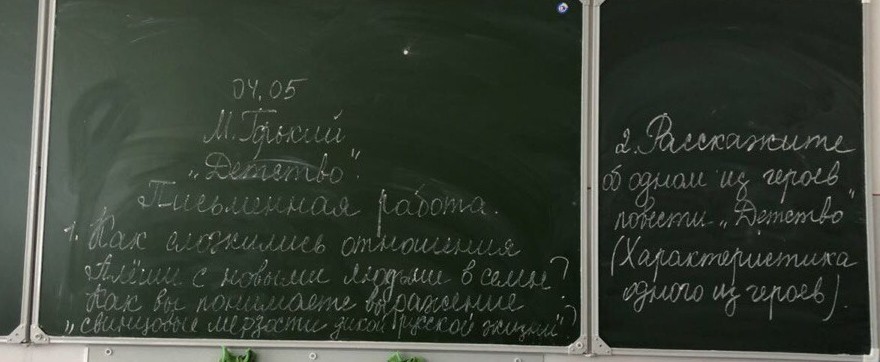 04.05
М. Горький
„Детство".
Письменная работа.
1. Как сложились отношения
Алёши с новыми людьми в семье?
Как вы понимаете выражение
„свинцовые мерзости дикой русской жизни"?
2. Расскажите
об одном из героев
повести „Детство"
(Характеристика
одного из героев).